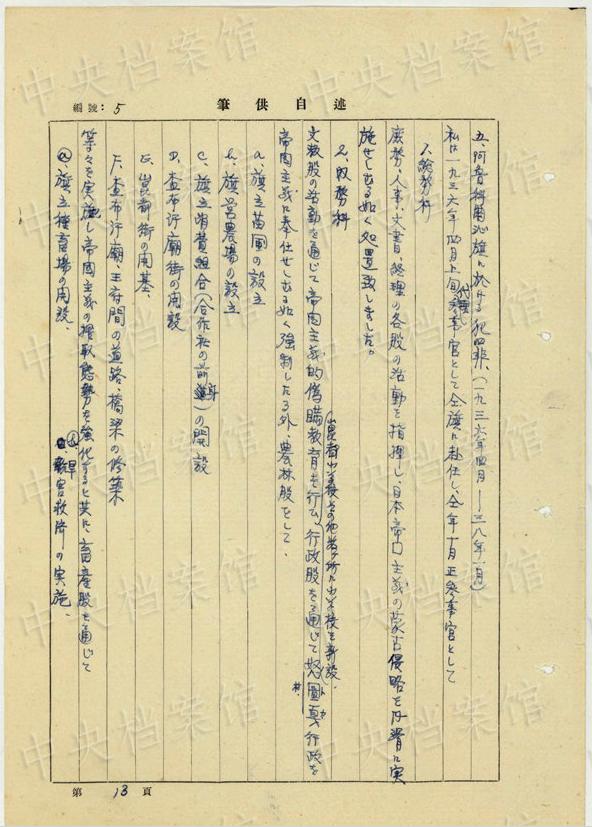 述自供筆
編號：5
五、阿魯科爾沁旗に於ける犯罪、(一九三六年四月——三八年一月)
私は一九三六年四月上旬代理参事官として仝旗に赴任し、仝年十月正参事官として
1、総務科
庶務、人事、文書、経理の各股の活動を指揮し、日本帝口主義の蒙古侵略を円滑に実
施せしむる如く処置致しました。
2、内務科
(崑都小学校その他 に小学校を新設、
文教股の活動を通じて帝国主義的偽瞞教育を行ひ、行政股を通じて 行政を
帝国主義に奉仕せしむる如く強制したる外、農林股をして、
a、旗立苗圃の設立
b、旗営農場の設立
c、旗立消費組合(合作社の前身)の開設
D、査布汗廟街の開設
E、崑都街の開基、
F、査布汗廟、王府間の道路、橋梁の修築
等々を実施し帝国主義の搾取態勢を強化すると共に、畜産股を通じて
a、旗立種畜場の開設、
旱害救済の実施、
第 13 頁
中央档案馆